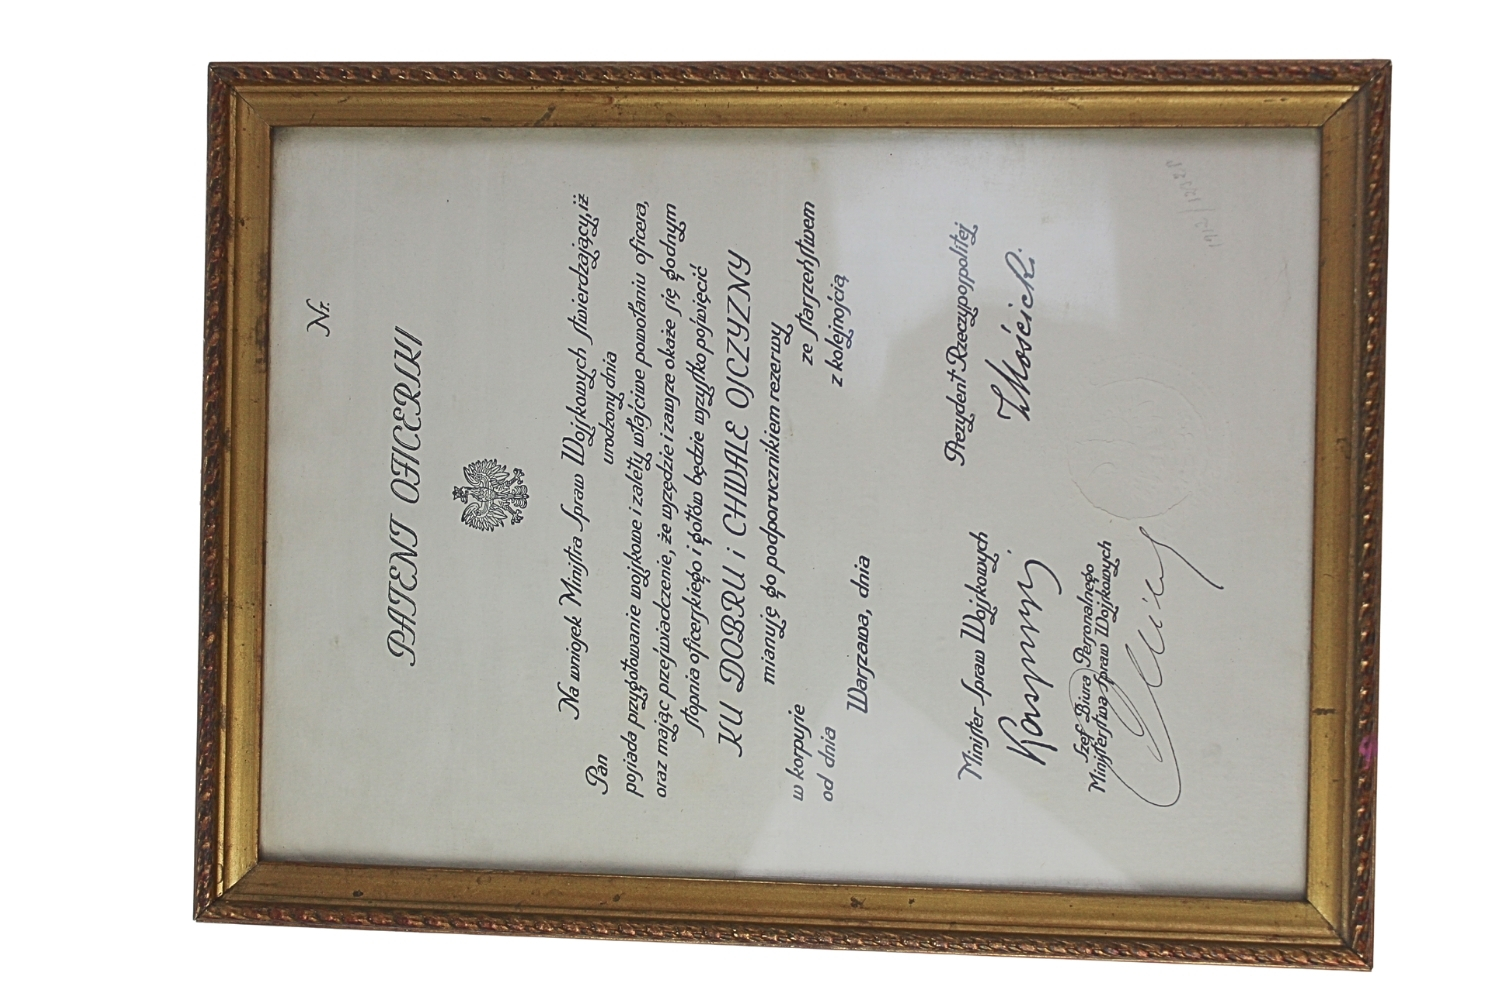 Nr.
PATENT OFICERSKI
Na wniosek Ministra Spraw Wojskowych stwierdzający, iż
Pan urodzony dnia
posiada przygotowanie wojskowe i zalety właściwe powołaniu oficera,
oraz mając przeświadczenie, że wszędzie i zawsze okaże się godnym
stopnia oficerskiego i gotów będzie wszystko poświęcić
KU DOBRU i CHWALE OJCZYZNY
mianuję go podporucznikiem rezerwy
w korpusie ze starszeństwem
od dnia z kolejnością
Warszawa, dnia
Minister Spraw Wojskowych Prezydent Rzeczypospolitej
Kasprzycki I Mościcki.
Szef Biura Personalnego
Ministerstwa Spraw Wojskowych